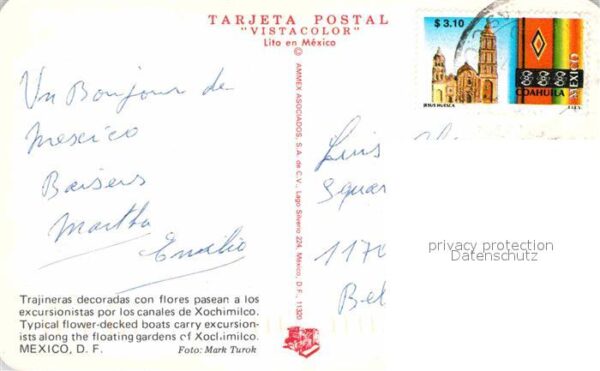 TARJETA POSTAL
"VISTACOLOR"
Lito en México
©
AMMEX ASOCIADOS, S.A. de C.V., Lago Silverio 224, México, D.F., 11320
$ 3.10
JESUS HUESCA
COAHUILA
MEXICO
Un Bonjour de
Mexico
Baisers
Martha
Emilio
Luis
Squar
1170
Bel
privacy protection
Datenschutz
Trajineras decoradas con flores pasean a los
excursionistas por los canales de Xochimilco.
Typical flower-decked boats carry excursion-
ists along the floating gardens of Xochimilco.
MEXICO, D. F.
Foto: Mark Turok